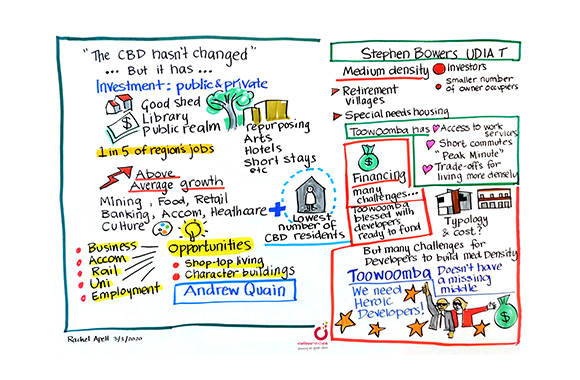 "The CBD hasn't changed"
... But it has ...
Investment: public & private
Good shed
Library
Public realm
repurposing
Arts
Hotels
Short stays
etc
1 in 5 of region's jobs
Above
Average growth
Mining, Food, Retail
Banking, Accom, Heathcare
Culture
+
Lowest
number of
CBD residents
Business
Accom
Rail
Uni
Employment
Opportunities
Shop-top living
Character buildings
Andrew Quain
Rachel Apelt 3/5/2020
Stephen Bowers UDIA T
Medium density
Investors
smaller number
of owner occupiers
Retirement
villages
Special needs housing
Toowoomba has
Access to work
services
Short commutes
"Peak Minute"
Trade-offs for
living more densely
$
$
Financing
many
challenges...
Toowoomba
blessed with
developers
ready to fund
Typology
& cost?
But many challenges for
Developers to build med Density
Toowoomba
Doesn't have
a missing
middle
We need
Heroic
Developers!
$